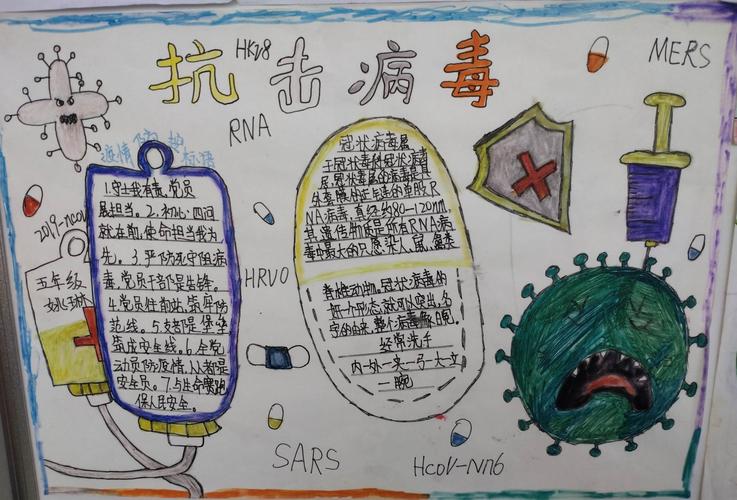 抗击病毒
HKV8
MERS
RNA
疫情防护
标语
2019-ncov
五年级
1.守土我有责,党员
展担当。2.初心四问
就在前,使命担当我为
先。3.严防死守阻病
毒,党员干部是先锋。
4.党员往前站,筑牢防
范线。5.支部是堡垒
筑成安全线。6.全党
动员防疫情,人人都是
安全员。7.与生命赛跑
保人民安全。
HRVO
冠状病毒属
于冠状毒科冠状病毒
属,冠状毒属的病毒是具
外套膜的正链单股R
NA病毒,直径约80-120nm
其遗传物质是所有RNA病
毒中最大的只感染人、鼠、
脊椎动物,冠状病毒的
一个形态
冠的由来,整个病毒像日冕,
经常洗手
内-外-夹-弓-大-立
-腕
SARS
HcoV-Nn6